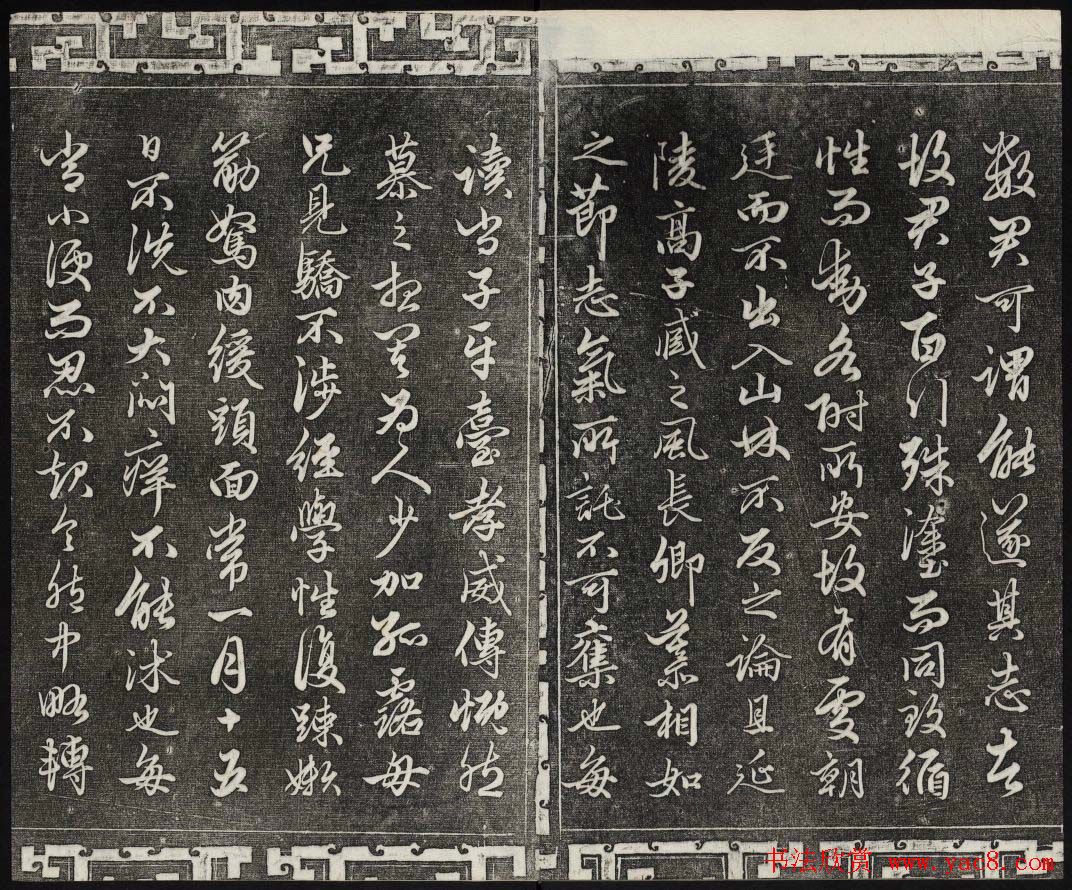 数君可謂能遂其志者
故君子百行殊塗而同致循
性而動各附所安故有處朝
廷而不出入山林不反之論且延
陵高子臧之風長卿慕相如
之節志氣所託不可奪也每
讀尚子平臺孝威傳慨然
慕之想其為人少加孤露母
兄見驕不涉經學性復踈嬾
筋駑肉緩頭面常一月十五
日不洗不大悶痒不能沐也每
當小便而忍不起令胞中略轉
书法欣赏 www.yac8.com